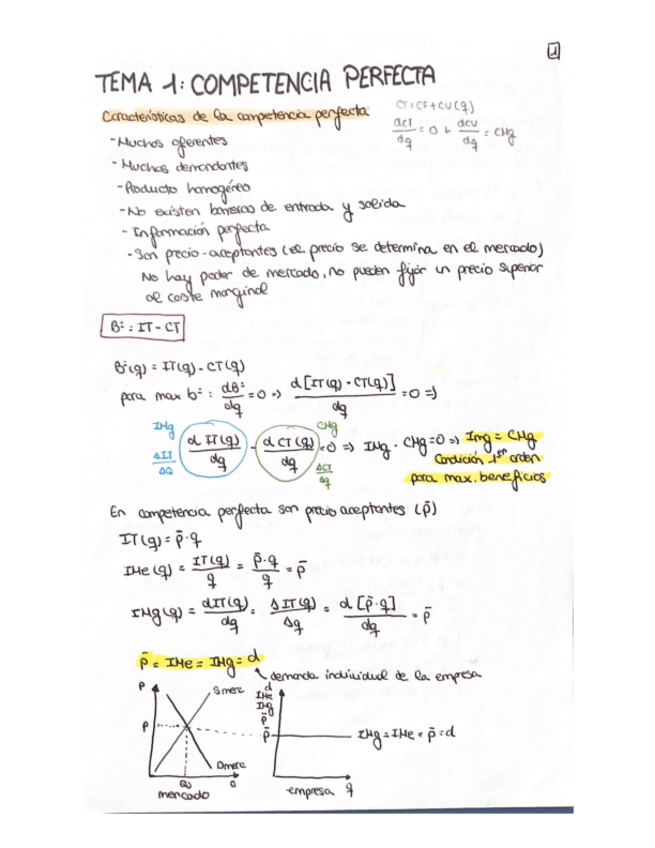 1
TEMA 1: COMPETENCIA PERFECTA
Características de la competencia perfecta
CT=CF+CV(q)
dCT/dq = 0 + dCV/dq = CMg
-Muchos oferentes
-Muchos demandantes
-Producto homogéneo
-No existen barreras de entrada y salida
-Información perfecta
-Son precio-aceptantes (el precio se determina en el mercado)
No hay poder de mercado, no pueden fijar un precio superior
al coste marginal
Bº = IT - CT
Bº(q) = IT(q) - CT(q)
para max bº : dBº/dq = 0 => d[IT(q) - CT(q)]/dq = 0 =>
IMg ΔIT/ΔQ dIT(q)/dq - dCT(q)/dq = 0 => IMg - CMg = 0 => Img = CMg
CMg ΔCT/Δq
Condición 1er orden
para max. beneficios
En competencia perfecta son precio aceptantes (p̄)
IT(q) = p̄·q
IMe(q) = IT(q)/q = p̄·q/q = p̄
IMg(q) = dIT(q)/dq = ΔIT(q)/Δq = d[p̄·q]/dq = p̄
p̄ = IMe = IMg = d
demanda individual de la empresa
P Smerc
d
IMe
IMg
p̄
P p̄ IMg = IMe = p̄ = d
Dmerc
Q
mercado empresa q